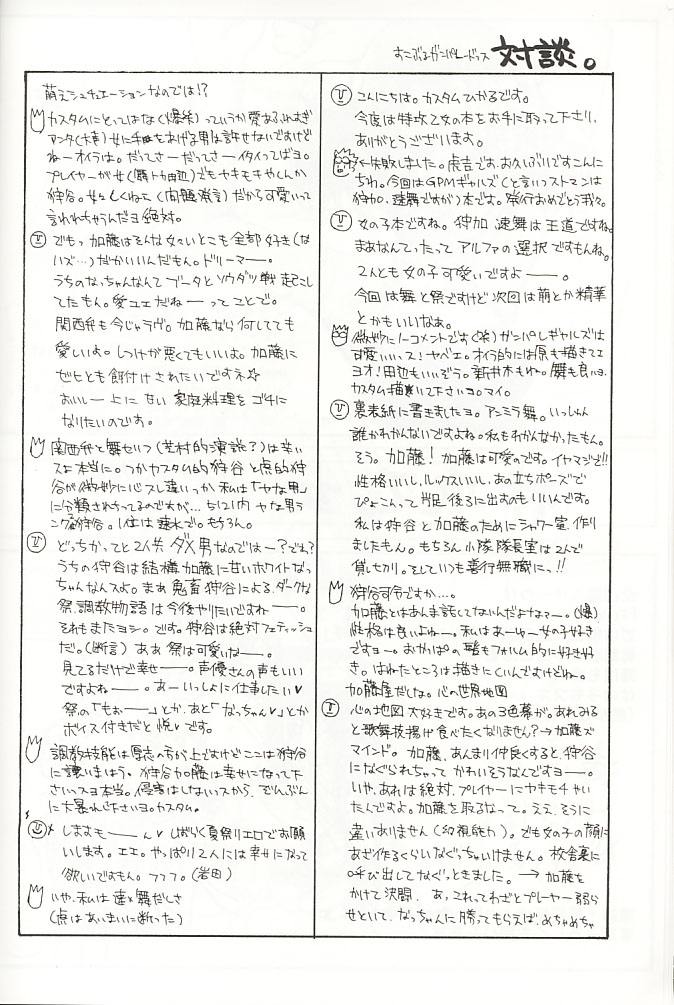 すこぶるガンパレードっス 対談。
こんにちは。カスタムひかるです。
今度は特攻乙女の本をお手に取って下さり、
ありがとうございます。
←失敗しました。虎吉です。お久しぶりですこんに
ちわ。今回はGPMギャルズ(と言いつつストマンは
狩加、速舞ですが)本です。発行おめでとう我々。
女の子本ですね。狩加 速舞は王道ですね。
まあなんてったって アルファの選択ですもんね。
2人とも女の子可愛いですよーーー。
今回は舞と祭ですけど 次回は萌とか精華
とかもいいなぁ。
微妙にノーコメントです(笑)ガンパレギャルズは
可愛いいっス!ヤベエ。オイラ的には原も描きてェ
ヨオ!田辺もいいぞう。新井木もね。 も良いヨ。
カスタム描いて下さいヨ。マイ。
裏表紙に書きましたヨ。アンミラ舞。いっしゅん
誰かわかんないですよね。私もわかんなかったもん。
そう。加藤!加藤は可愛のです。イヤマジで!!
性格いいし、ルックスいいし、あの立ちポーズで
ぴょこんって片足後ろに出すのもいいんです。
私は狩谷と加藤のためにシャワー室 作り
ましたもん。もちろん小隊隊長室は2人で
貸し切り。そしていつも善行無職にっ!!
狩谷司令ですか…。
加藤とはあんま話してないんだよなァー。(爆)
性格は良いよねー。私はあーゆー女の子好き
ですヨー。おかっぱの髪もフォルム的に好き好
き。はねたところは描きにくいんですけどね。
加藤屋だしな。心の世界地図
心の地図大好きです。あの3色幕が。あれみる
と歌舞伎揚げ食べたくなりません?→加藤ズ
マインド。 加藤、あんまり仲良くすると、狩谷
になぐられちゃって かわいそうなんですヨー。
いや、あれは絶対、プレイヤーにヤキモチやい
たんですよ。加藤を取るなって。ええ、そうに
違いありません(幻視能力)。でも女の子の顔に
あざ作るくらいなぐっちゃいけません。校舎裏に
呼び出してなぐっときました。→加藤を
かけて決闘、 あ、これってわざとプレーヤー弱ら
せといて、なっちゃんに勝ってもらえば、めちゃめちゃ
萌えシュチュエーションなのでは!?
カスタムにとってはな(爆笑)っていうか愛あふれすぎ
アンタ(大声)女に手をあげる男は許せないですけど
ねーオイラは。だってさーだってさーイタイってばヨ。
プレイヤーが女( 田辺)でもヤキモキやくんか
狩谷。女々しくねェ(問題発言)だから可愛いって
言われちゃうんだヨ絶対。
でもっ 加藤はそんな女々いとこも全部好き(な
ハズ…)だからいいんだもん。ドリーマー。
うちのなっちゃんなんてブータとソウダツ戦 起こし
てたもん。愛ユエだねーってことで。
関西弁も今じゃラヴ。加藤なら何してても
愛しいよ。しつけが悪くてもいいよ。加藤に
ゼヒとも餌付けされたいですネ☆
おいしー上にせい家庭料理をゴチに
なりたいのです。
関西弁と舞せいつ(芝村的演説?)は辛い
スよ本当に。つかカスタム的狩谷と虎的狩
谷が微妙に心スレ違いっつか 私は「ヤな男」
に分類されちってるのですが…。ちなみに ヤな男ラ
ンク 狩谷。1位は速水で。もちろん。
どっちかってと2人共 ダメ男なのではー?でね?
うちの狩谷は結構加藤に甘いホワイトなっ
ちゃんなんスよ。まあ 鬼畜狩谷による、ダークな
祭調教物語は今後やりたいですねーー。
それもまたヨシ。です。狩谷は絶対フェティッシュ
だ。(断言) ああ 祭は可愛いねーー。
見てるだけで幸せーー。声優さんの声もいい
ですよねーー。あーいっしょに仕事したい♥
祭の「もぉーー」とか、あと「なっちゃん♥」とか
ボイス付きだと悦♥です。
調教技能は厚志の方が上ですけどここは狩谷
に譲いましょう。狩谷加藤は幸せになって下
さいっスヨ本当。侵害はしないっスから、ぞんぶん
に大暴れ下さいヨ。カスタム。
しますもーーーん♥ しばらく夏祭りエロでお願
いします。エエ。やっぱり2人には幸せになって
欲しいですもん。フフフ。(岩田)
いや、私は速×舞だしさ
(虎はあいまいに断った)